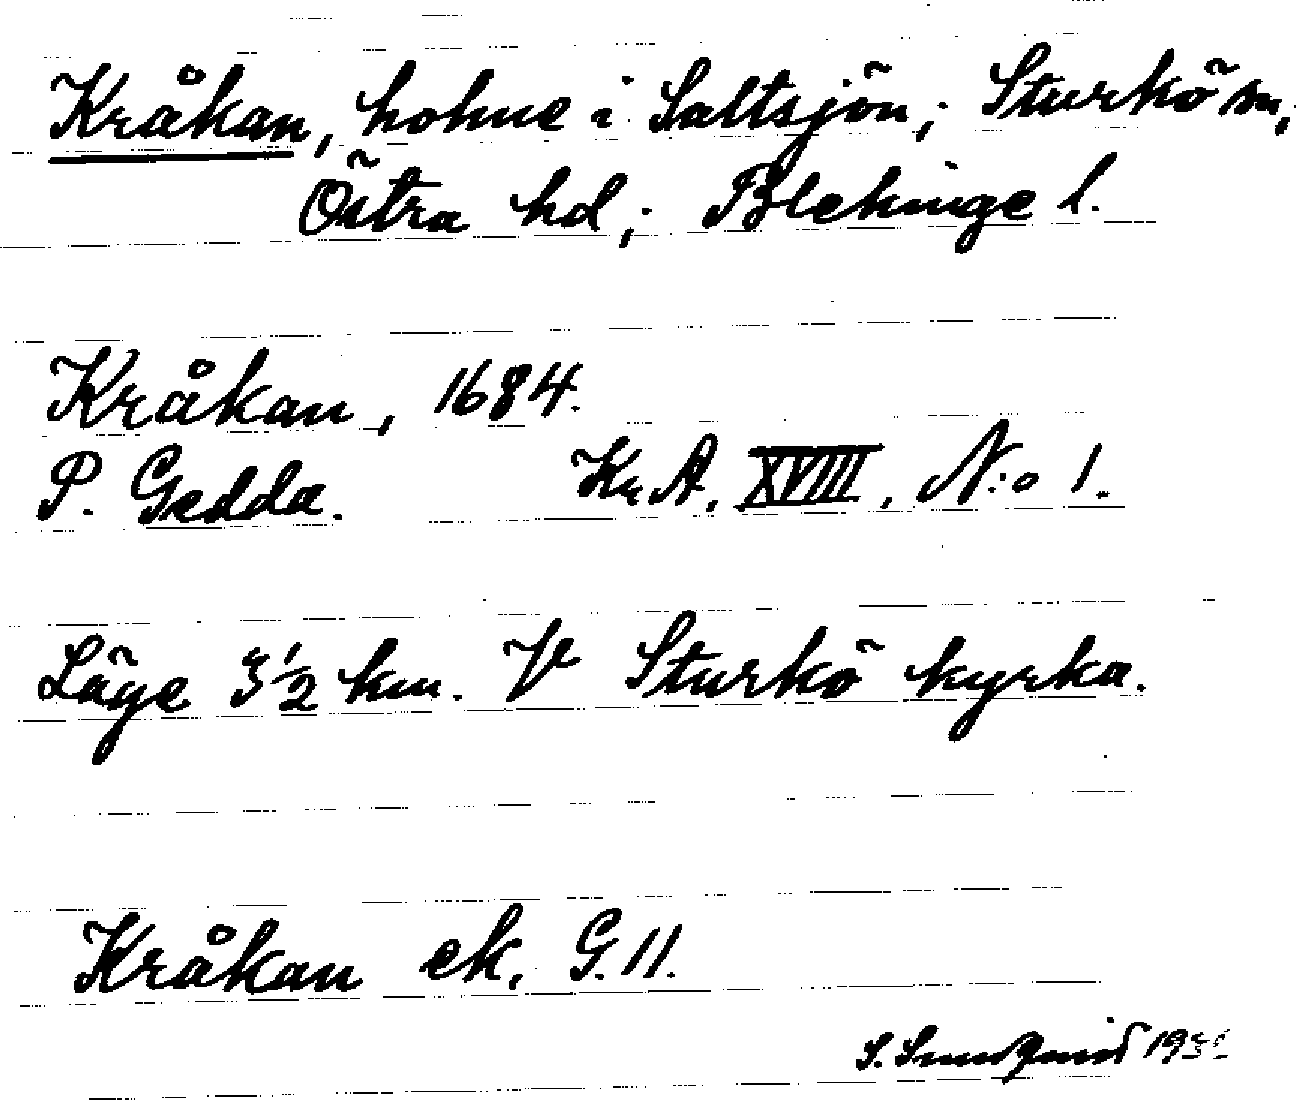 Kråkan, holme i Saltsjön; Sturkö sn;
Östra hd; Blekinge l.
Kråkan, 1684.
P. Gedda. Kr A, XVIII, N:o 1.
Läge 3 1/2 km. V Sturkö kyrka.
Kråkan ek. G. 11.
S.